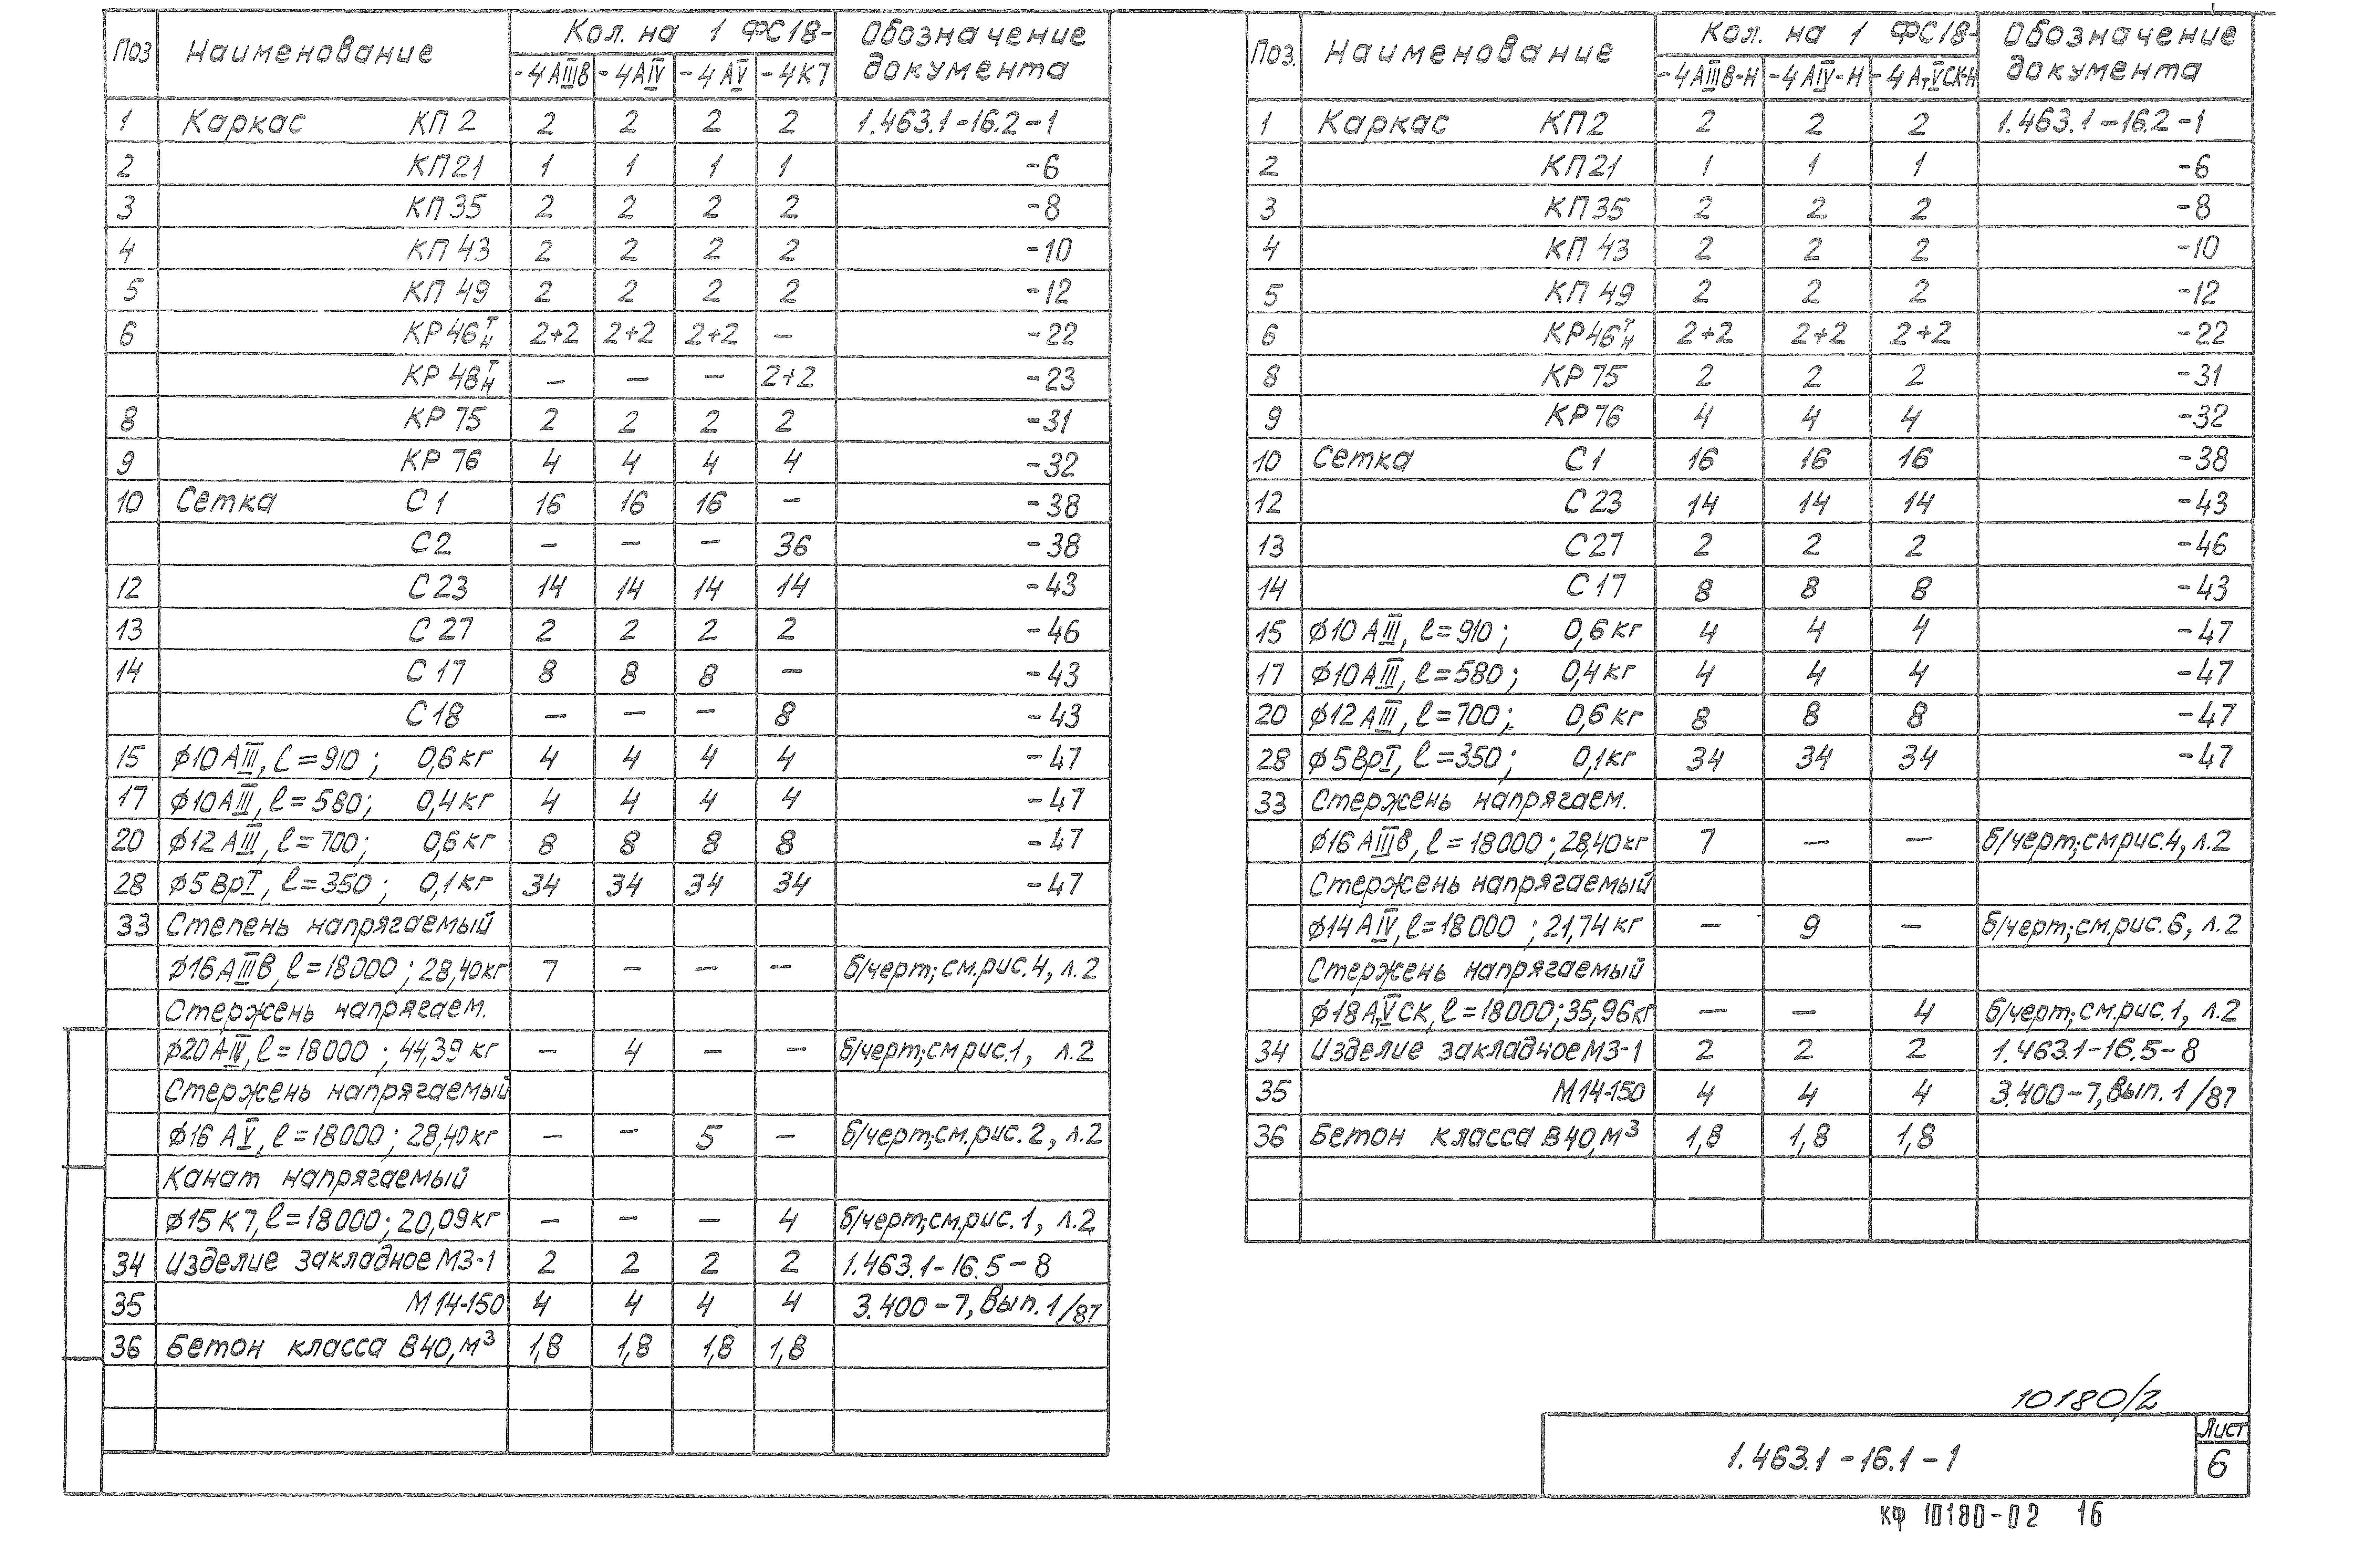 Поз Наименование Кол. на 1 ФС18- Обозначение документа
-4АIIIв -4АIV -4АV -4К7
1 Каркас КП2 2 2 2 2 1.463.1-16.2-1
2 КП21 1 1 1 1 -6
3 КП35 2 2 2 2 -8
4 КП 43 2 2 2 2 -10
5 КП 49 2 2 2 2 -12
6 КР46Т/Н 2+2 2+2 2+2 – -22
КР48Т/Н – – – 2+2 -23
8 КР 75 2 2 2 2 -31
9 КР 76 4 4 4 4 -32
10 Сетка С1 16 16 16 – -38
С2 – – – 36 -38
12 С23 14 14 14 14 -43
13 С27 2 2 2 2 -46
14 С17 8 8 8 – -43
С18 – – – 8 -43
15 ϕ10АIII, ℓ=910; 0,6кг 4 4 4 4 -47
17 ϕ10АIII, ℓ=580; 0,4кг 4 4 4 4 -47
20 ϕ12АIII, ℓ=700; 0,6кг 8 8 8 8 -47
28 ϕ5ВрI, ℓ=350; 0,1кг 34 34 34 34 -47
33 Степень напрягаемый
ϕ16АIIIв, ℓ=18000; 28,40кг 7 – – – б/черт; см.рис.4, л.2
Стержень напрягаем.
ϕ20АIV, ℓ=18000; 44,39 кг – 4 – – б/черт; см рис.1, л.2
Стержень напрягаемый
ϕ16 АV, ℓ=18000; 28,40кг – – 5 – б/черт; см.рис.2, л.2
Канат напрягаемый
ϕ15К7, ℓ=18000; 20,09кг – – – 4 б/черт; см.рис.1, л.2
34 Изделие закладное МЗ-1 2 2 2 2 1.463.1-16.5-8
35 М14-150 4 4 4 4 3.400-7, вып.1/87
36 Бетон класса В40, м³ 1,8 1,8 1,8 1,8
Поз. Наименование Кол. на 1 ФС18- Обозначение документа
-4АIIIв-Н -4АIV-Н -4АтVСК-Н
1 Каркас КП2 2 2 2 1.463.1-16.2-1
2 КП21 1 1 1 -6
3 КП35 2 2 2 -8
4 КП 43 2 2 2 -10
5 КП 49 2 2 2 -12
6 КР46Т/Н 2+2 2+2 2+2 -22
8 КР75 2 2 2 -31
9 КР76 4 4 4 -32
10 Сетка С1 16 16 16 -38
12 С23 14 14 14 -43
13 С27 2 2 2 -46
14 С17 8 8 8 -43
15 ϕ10АIII, ℓ=910; 0,6кг 4 4 4 -47
17 ϕ10АIII, ℓ=580; 0,4кг 4 4 4 -47
20 ϕ12АIII, ℓ=700; 0,6кг 8 8 8 -47
28 ϕ5ВрI, ℓ=350; 0,1кг 34 34 34 -47
33 Стержень напрягаем.
ϕ16АIIIв, ℓ=18000; 28,40кг 7 – – б/черт; см рис.4, л.2
Стержень напрягаемый
ϕ14АIV, ℓ=18000; 21,74кг – 9 – б/черт; см.рис.6, л.2
Стержень напрягаемый
ϕ18АтVСК, ℓ=18000; 35,96кг – – 4 б/черт; см.рис.1, л.2
34 Изделие закладное МЗ-1 2 2 2 1.463.1-16.5-8
35 М14-150 4 4 4 3.400-7, вып.1/87
36 Бетон класса В40, м³ 1,8 1,8 1,8
10180/2
1.463.1-16.1-1
Лист
6
КФ 10180-02 16